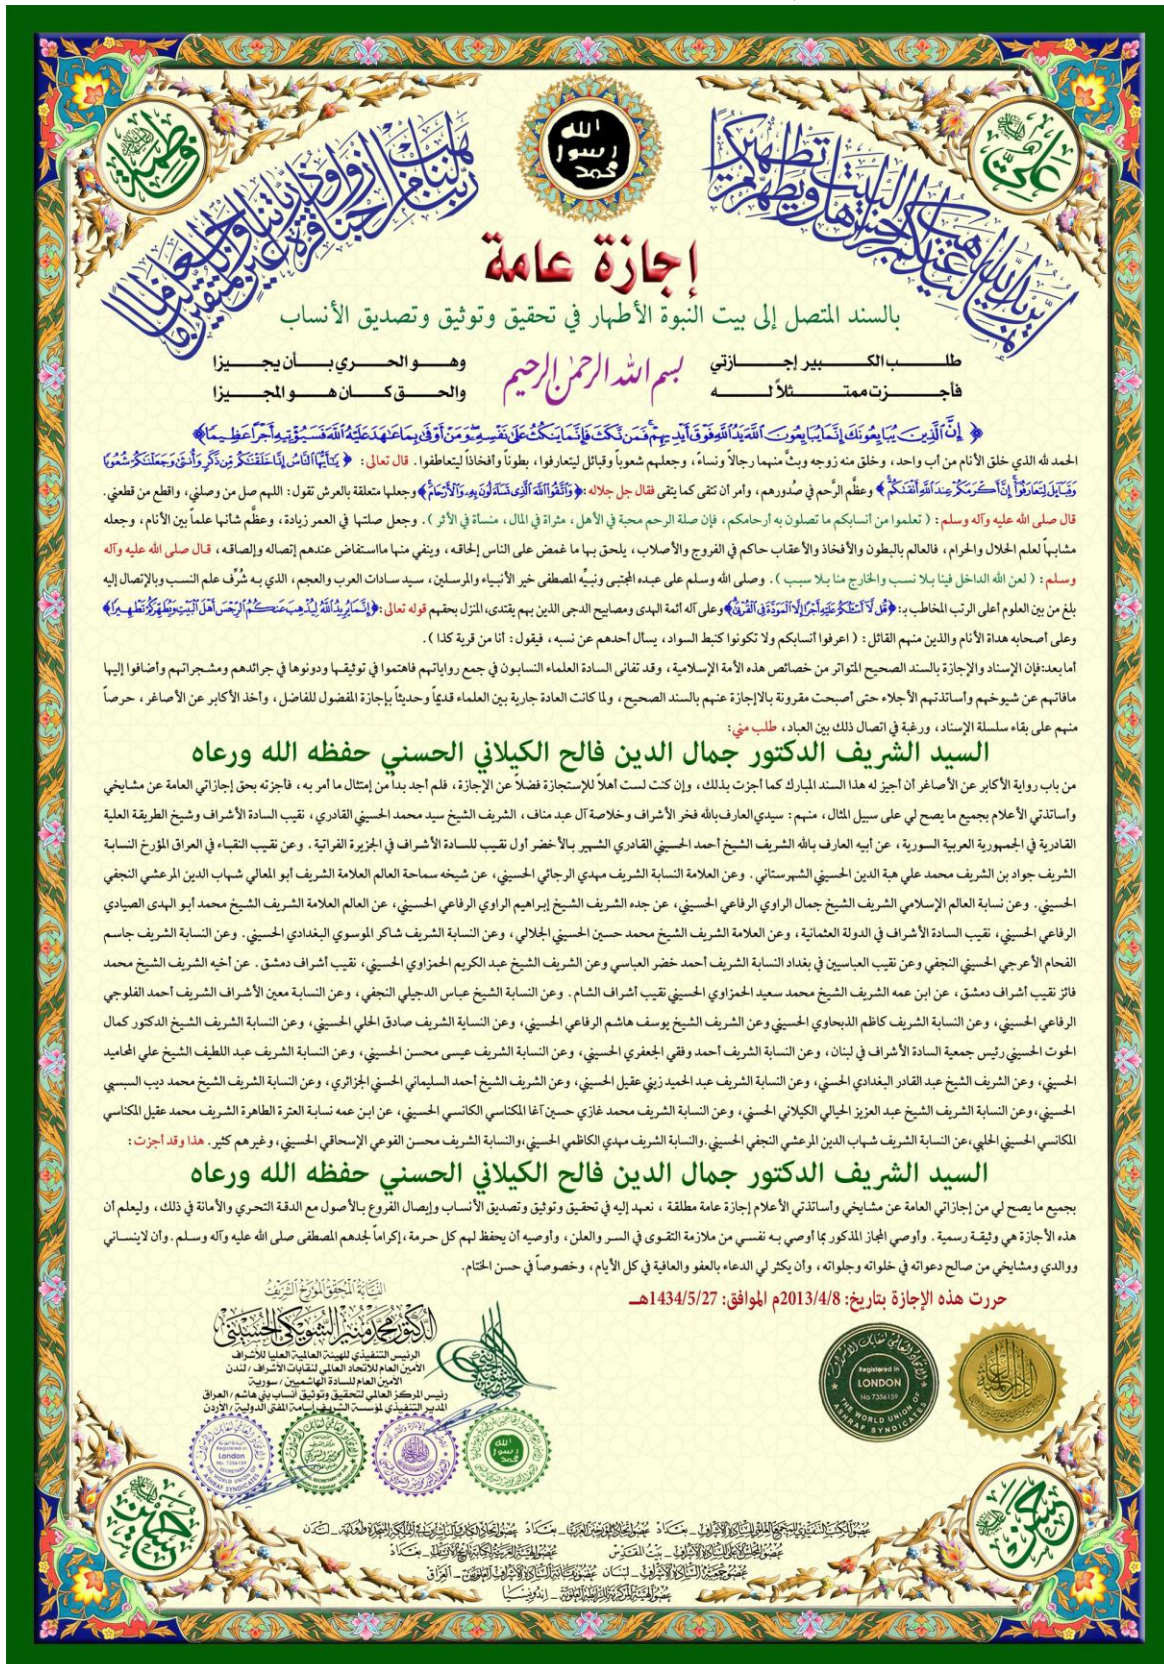 علي
فاطمة
الله
رسول
محمد
إجازة عامة
بالسند المتصل إلى بيت النبوة الأطهار في تحقيق وتوثيق وتصديق الأنساب
طلب الكبير إجازتي وهو الحري بأن يجيزا
بسم الله الرحمن الرحيم
فأجزت ممتثلاً له والحق كان هو المجيزا
﴿ إِنَّ الَّذِينَ يُبَايِعُونَكَ إِنَّمَا يُبَايِعُونَ اللَّهَ يَدُ اللَّهِ فَوْقَ أَيْدِيهِمْ فَمَن نَّكَثَ فَإِنَّمَا يَنكُثُ عَلَىٰ نَفْسِهِ وَمَنْ أَوْفَىٰ بِمَا عَاهَدَ عَلَيْهُ اللَّهَ فَسَيُؤْتِيهِ أَجْرًا عَظِيمًا ﴾
الحمد لله الذي خلق الأنام من أب واحد، وخلق منه زوجه وبثَّ منهما رجالاً ونساءً، وجعلهم شعوباً وقبائل ليتعارفوا، بطوناً وأفخاذاً ليتعاطفوا. قال تعالى: ﴿ يَا أَيُّهَا النَّاسُ إِنَّا خَلَقْنَاكُم مِّن ذَكَرٍ وَأُنثَىٰ وَجَعَلْنَاكُمْ شُعُوبًا
وَقَبَائِلَ لِتَعَارَفُوا إِنَّ أَكْرَمَكُمْ عِندَ اللَّهِ أَتْقَاكُمْ ﴾ وعظَّم الرَّحم في صُدورهم، وأمر أن تتقى كما يتقى فقال جل جلاله: ﴿ وَاتَّقُوا اللَّهَ الَّذِي تَسَاءَلُونَ بِهِ وَالْأَرْحَامَ ﴾ وجعلها متعلقة بالعرش تقول: اللهم صل من وصلني، واقطع من قطعني.
قال صلى الله عليه وآله وسلم: ( تعلموا من أنسابكم ما تصلون به أرحامكم، فإن صلة الرحم محبة في الأهل، مثراة في المال، منسأة في الأثر ). وجعل صلتها في العمر زيادة، وعظَّم شأنها علماً بين الأنام، وجعله
مشابهاً لعلم الحلال والحرام، فالعالم بالبطون والأفخاذ والأعقاب حاكم في الفروج والأصلاب، يلحق بها ما غمض على الناس إلحاقه، وينفي منها مااستفاض عندهم إتصاله وإلصاقه، قال صلى الله عليه وآله
وسلم: ( لعن الله الداخل فينا بلا نسب والخارج منا بلا سبب ). وصلى الله وسلم على عبده المجتبى ونبيِّه المصطفى خير الأنبياء والمرسلين، سيد سادات العرب والعجم، الذي به شُرِّف علم النسب وبالإتصال إليه
بلغ من بين العلوم أعلى الرتب المخاطب بـ: ﴿ قُل لَّا أَسْأَلُكُمْ عَلَيْهِ أَجْرًا إِلَّا الْمَوَدَّةَ فِي الْقُرْبَىٰ ﴾ وعلى آله أئمة الهدى ومصابيح الدجى الذين بهم يقتدى، المنزل بحقهم قوله تعالى: ﴿ إِنَّمَا يُرِيدُ اللَّهُ لِيُذْهِبَ عَنكُمُ الرِّجْسَ أَهْلَ الْبَيْتِ وَيُطَهِّرَكُمْ تَطْهِيرًا ﴾
وعلى أصحابه هداة الأنام والذين منهم القائل: ( اعرفوا أنسابكم ولا تكونوا كنبط السواد، يسأل أحدهم عن نسبه، فيقول: أنا من قرية كذا ).
أما بعد:فإن الإسناد والإجازة بالسند الصحيح المتواتر من خصائص هذه الأمة الإسلامية، وقد تفانى السادة العلماء النسابون في جمع رواياتهم فاهتموا في توثيقها ودونوها في جرائدهم ومشجراتهم وأضافوا إليها
مافاتهم عن شيوخهم وأساتذتهم الأجلاء حتى أصبحت مقرونة بالإجازة عنهم بالسند الصحيح، ولما كانت العادة جارية بين العلماء قديماً وحديثاً بإجازة المفضول للفاضل، وأخذ الأكابر عن الأصاغر، حرصاً
منهم على بقاء سلسلة الإسناد، ورغبة في اتصال ذلك بين العباد، طلب مني:
السيد الشريف الدكتور جمال الدين فالح الكيلاني الحسني حفظه الله ورعاه
من باب رواية الأكابر عن الأصاغر أن أجيز له هذا السند المبارك كما أجزت بذلك، وإن كنت لست أهلاً للإستجازة فضلاً عن الإجازة، فلم أجد بداً من إمتثال ما أمر به، فأجزته بحق إجازاتي العامة عن مشايخي
وأساتذتي الأعلام بجميع ما يصح لي على سبيل المثال، منهم: سيدي العارف بالله فخر الأشراف وخلاصة آل عبد مناف، الشريف الشيخ سيد محمد الحسيني القادري، نقيب السادة الأشراف وشيخ الطريقة العلية
القادرية في الجمهورية العربية السورية، عن أبيه العارف بالله الشريف الشيخ أحمد الحسيني القادري الشهير بالأخضر أول نقيب للسادة الأشراف في الجزيرة الفراتية. وعن نقيب النقباء في العراق المؤرخ النسابة
الشريف جواد بن الشريف محمد علي هبة الدين الحسيني الشهرستاني. وعن العلامة النسابة الشريف مهدي الرجائي الحسيني، عن شيخه سماحة العالم العلامة الشريف أبو المعالي شهاب الدين المرعشي النجفي
الحسيني. وعن نسابة العالم الإسلامي الشريف الشيخ جمال الراوي الرفاعي الحسيني، عن جده الشريف الشيخ إبراهيم الراوي الرفاعي الحسيني، عن العالم العلامة الشريف الشيخ محمد أبو الهدى الصيادي
الرفاعي الحسيني، نقيب السادة الأشراف في الدولة العثمانية، وعن العلامة الشريف الشيخ محمد حسين الحسيني الجلالي، وعن النسابة الشريف شاكر الموسوي البغدادي الحسيني. وعن النسابة الشريف جاسم
الفحام الأعرجي الحسيني النجفي وعن نقيب العباسيين في بغداد النسابة الشريف أحمد خضر العباسي وعن الشريف الشيخ عبد الكريم الحمزاوي الحسيني، نقيب أشراف دمشق. عن أخيه الشريف الشيخ محمد
فائز نقيب أشراف دمشق، عن ابن عمه الشريف الشيخ محمد سعيد الحمزاوي الحسيني نقيب أشراف الشام. وعن النسابة الشيخ عباس الدجيلي النجفي، وعن النسابة معين الأشراف الشريف أحمد الفلوجي
الرفاعي الحسيني، وعن النسابة الشريف كاظم الذبحاوي الحسيني وعن الشريف الشيخ يوسف هاشم الرفاعي الحسيني، وعن النسابة الشريف صادق الحلي الحسيني، وعن النسابة الشريف الشيخ الدكتور كمال
الحوت الحسيني رئيس جمعية السادة الأشراف في لبنان، وعن النسابة الشريف أحمد وفقي الجعفري الحسيني، وعن النسابة الشريف عيسى محسن الحسيني، وعن النسابة الشريف عبد اللطيف الشيخ علي المحاميد
الحسيني، وعن الشريف الشيخ عبد القادر البغدادي الحسني، وعن النسابة الشريف عبد الحميد زيني عقيل الحسيني، وعن الشريف الشيخ أحمد السليماني الحسني الجزائري، وعن النسابة الشريف الشيخ محمد ديب السبسبي
الحسيني، وعن النسابة الشريف الشيخ عبد العزيز الحيالي الكيلاني الحسني، وعن النسابة الشريف محمد غازي حسين آغا المكناسي الكانسي الحسيني، عن ابن عمه نسابة العترة الطاهرة الشريف محمد عقيل المكناسي
المكانسي الحسيني الحلبي،عن النسابة الشريف شهاب الدين المرعشي النجفي الحسيني.والنسابة الشريف مهدي الكاظمي الحسيني،والنسابة الشريف محسن الفوعي الإسحاقي الحسيني، وغيرهم كثير. هذا وقد أجزت:
السيد الشريف الدكتور جمال الدين فالح الكيلاني الحسني حفظه الله ورعاه
بجميع ما يصح لي من إجازاتي العامة عن مشايخي وأساتذتي الأعلام إجازة عامة مطلقة، نعهد إليه في تحقيق وتوثيق وتصديق الأنساب وإيصال الفروع بالأصول مع الدقة التحري والأمانة في ذلك، وليعلم أن
هذه الأجازة هي وثيقة رسمية. وأوصي المجاز المذكور بما أوصي به نفسي من ملازمة التقوى في السر والعلن، وأوصيه أن يحفظ لهم كل حرمة، إكراماً لجدهم المصطفى صلى الله عليه وآله وسلم. وأن لاينساني
ووالدي ومشايخي من صالح دعواته في خلواته وجلواته، وأن يكثر لي الدعاء بالعفو والعافية في كل الأيام، وخصوصاً في حسن الختام.
حررت هذه الإجازة بتاريخ: 2013/4/8م الموافق: 1434/5/27هـ
النسابة المحقق المؤرخ الشريف
الدكتور محمد منير الشويكي الحسيني
الرئيس التنفيذي للهيئة العالمية العليا للأشراف
الأمين العام للاتحاد العالمي لنقابات الأشراف / لندن
الأمين العام للسادة الهاشميين / سورية
رئيس المركز العالمي لتحقيق وتوثيق أنساب بني هاشم / العراق
المدير التنفيذي لمؤسسة الشريف أسامة المفتي الدولية / الأردن
Registered in
LONDON
No.7356159
THE WORLD UNION OF ASHRAF SYNDICATES
حسن
حسين